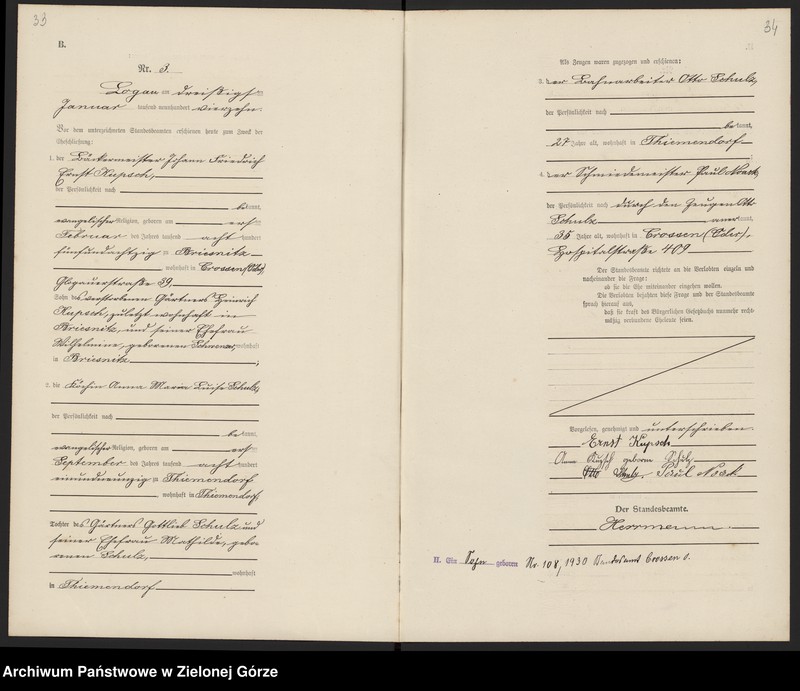 33
B.
Nr. 3.
Logau am dreißigsten
Januar tausend neunhundert vierzehn.
Vor dem unterzeichneten Standesbeamten erschienen heute zum Zweck der
Eheschließung:
1. der Bäckermeister Johann Friedrich
Ernst Kupsch,
der Persönlichkeit nach
bekannt,
evangelischer Religion, geboren am ersten
Februar des Jahres tausend acht hundert
fünfundachtzig in Briesnitz
, wohnhaft in Crossen (Oder)
Glogauerstraße 39,
Sohn des verstorbenen Gärtners Heinrich
Kupsch, zuletzt wohnhaft in
Briesnitz, und seiner Ehefrau
Wilhelmine, geborenen wohnhaft
in Briesnitz ;
2. die Köchin Anna Maria Luise Schulz,
der Persönlichkeit nach
bekannt,
evangelischer Religion, geboren am ersten
September des Jahres tausend acht hundert
einundneunzig in Thiemendorf
, wohnhaft in Thiemendorf
Tochter des Gärtners Gottlieb Schulz und
seiner Ehefrau Mathilde, gebo-
renen Schulz,
wohnhaft
in Thiemendorf
34
Als Zeugen waren zugezogen und erschienen:
3. der Bahnarbeiter Otto Schulz,
der Persönlichkeit nach
bekannt,
27 Jahre alt, wohnhaft in Thiemendorf
4. der Schmiedemeister Paul Noack,
der Persönlichkeit nach durch den Zeugen Otto
Schulz anerkannt,
35 Jahre alt, wohnhaft in Crossen (Oder),
Hospitalstraße 409
Der Standesbeamte richtete an die Verlobten einzeln und
nacheinander die Frage:
ob sie die Ehe miteinander eingehen wollen.
Die Verlobten bejahten diese Frage und der Standesbeamte
sprach hierauf aus,
daß sie kraft des Bürgerlichen Gesetzbuchs nunmehr recht-
mäßig verbundene Eheleute seien.
Vorgelesen, genehmigt und unterschrieben
Ernst Kupsch
Anna Kupsch geborene Schulz
Otto Schulz, Paul Noack
Der Standesbeamte.
Herrmann.
II. Ein Sohn geboren Nr. 108, 1930 Standesamt Crossen O.
Archiwum Państwowe w Zielonej Górze